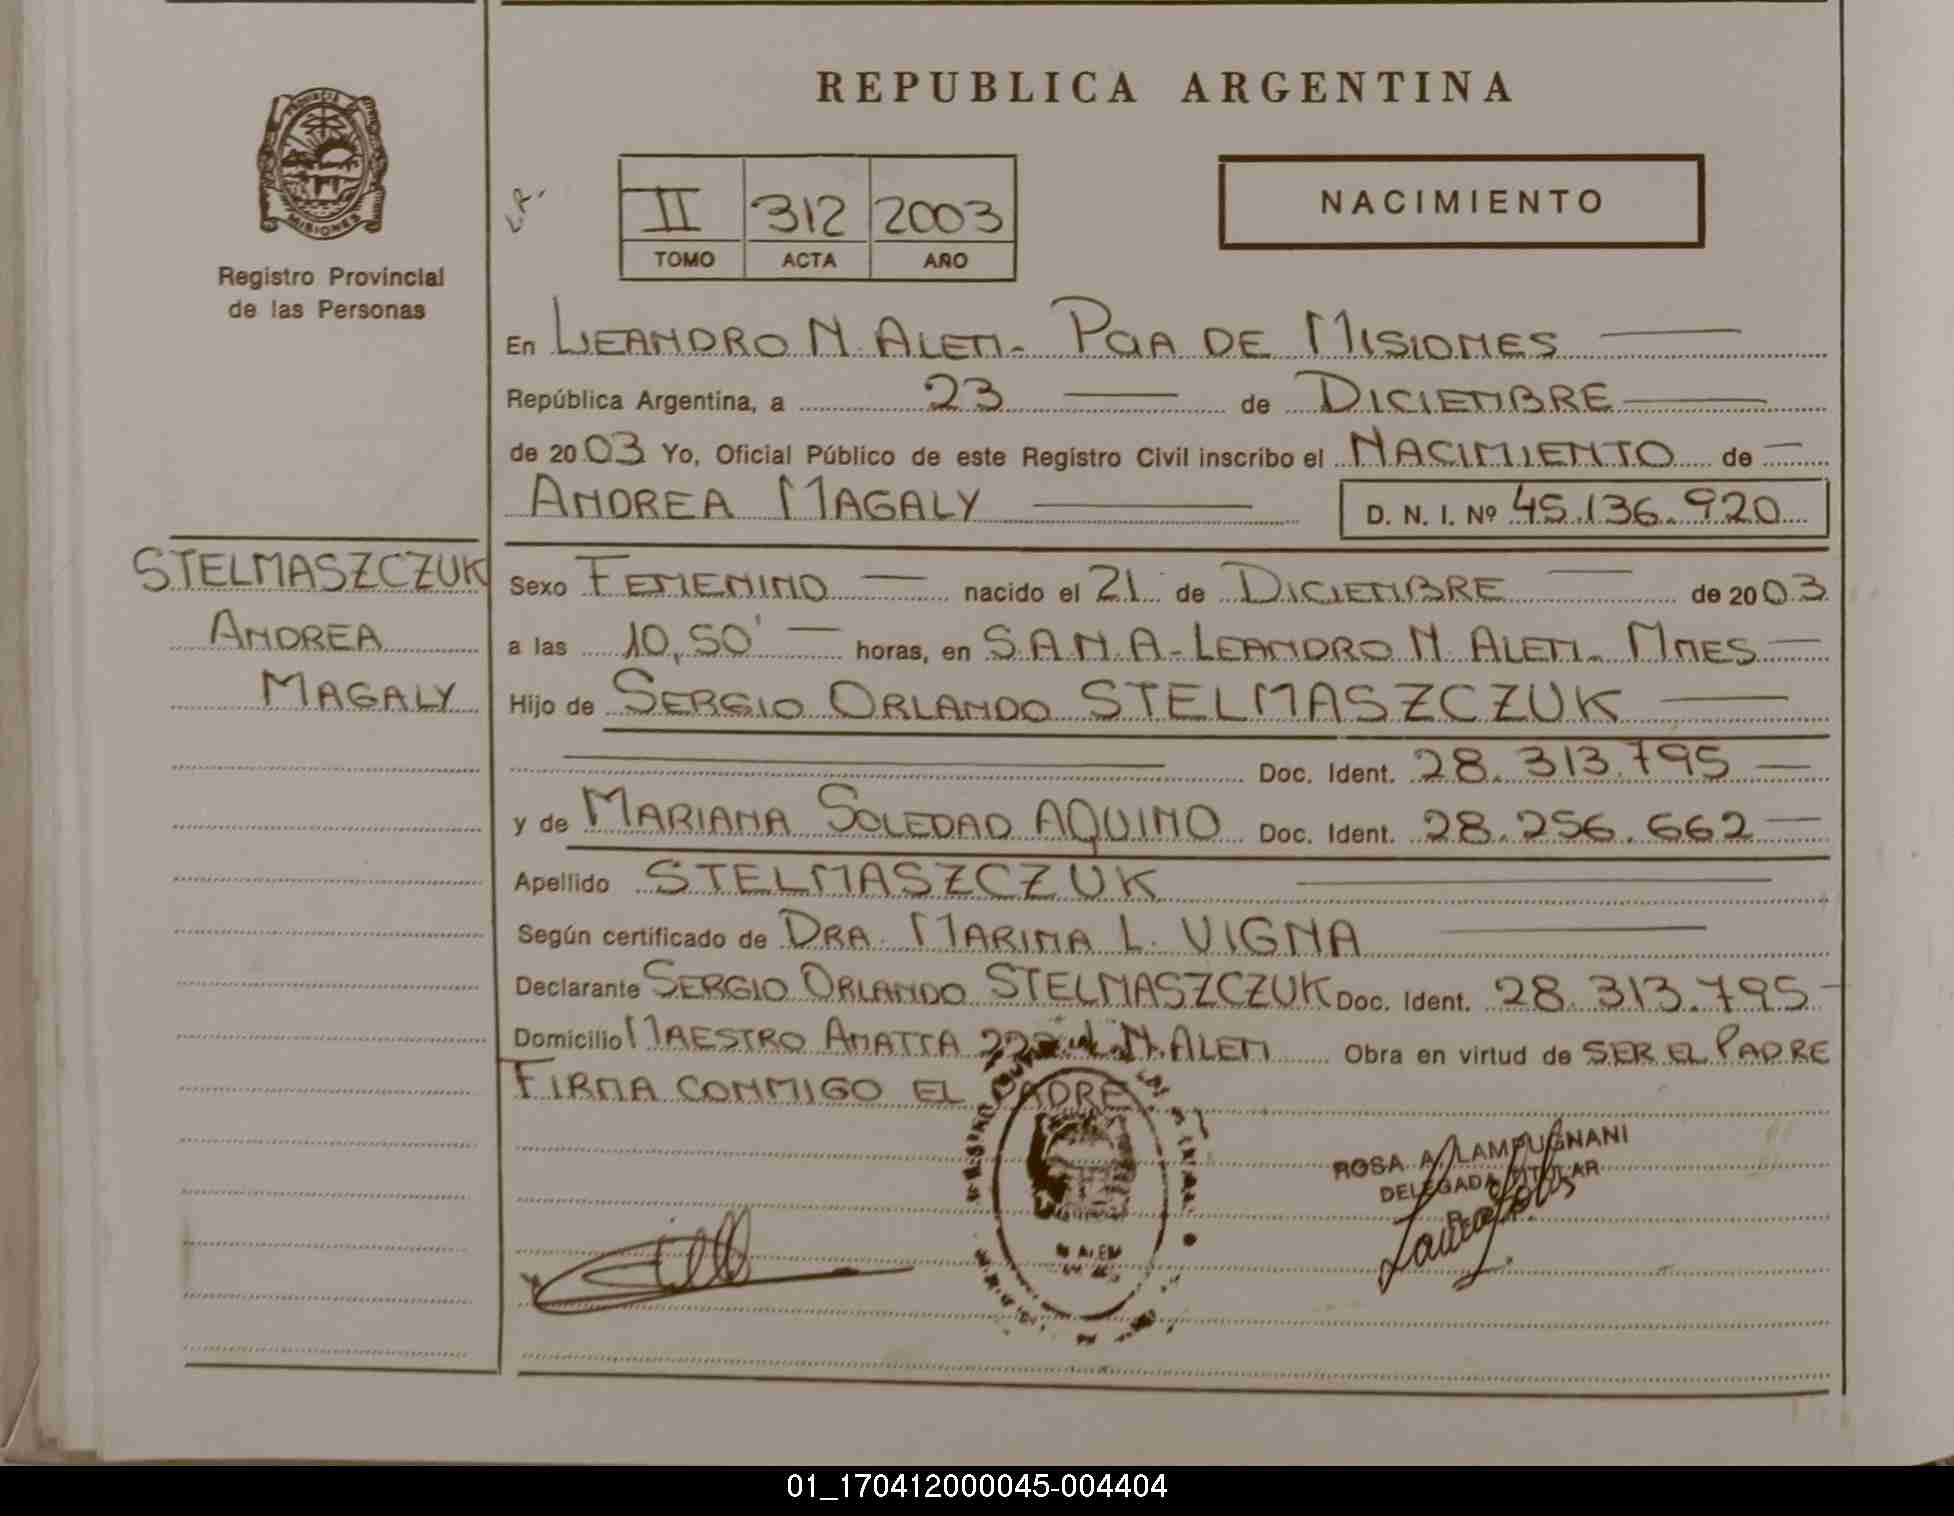 REPUBLICA ARGENTINA
PROVINCIA DE
MISIONES
Registro Provincial
de las Personas
II 312 2003
TOMO ACTA AÑO
NACIMIENTO
En LEANDRO N. ALEM - PCIA DE MISIONES
República Argentina, a 23 de DICIEMBRE
de 2003 Yo, Oficial Público de este Registro Civil inscribo el NACIMIENTO de
ANDREA MAGALY D. N. I. Nº 45.136.920
STELMASZCZUK
ANDREA
MAGALY
Sexo FEMENINO nacido el 21 de DICIEMBRE de 2003
a las 10,50' horas, en S.A.N.A - LEANDRO N. ALEM - MNES
Hijo de SERGIO ORLANDO STELMASZCZUK
Doc. Ident. 28.313.795
y de MARIANA SOLEDAD AQUINO Doc. Ident. 28.256.662
Apellido STELMASZCZUK
Según certificado de DRA. MARINA L. VIGNA
Declarante SERGIO ORLANDO STELMASZCZUK Doc. Ident. 28.313.795
Domicilio MAESTRO AMATTA L. N. ALEM Obra en virtud de SER EL PADRE
FIRMA CONMIGO EL PADRE
ROSA A. LAMPUGNANI
DELEGADA TITULAR
N. ALEM
01_170412000045-004404